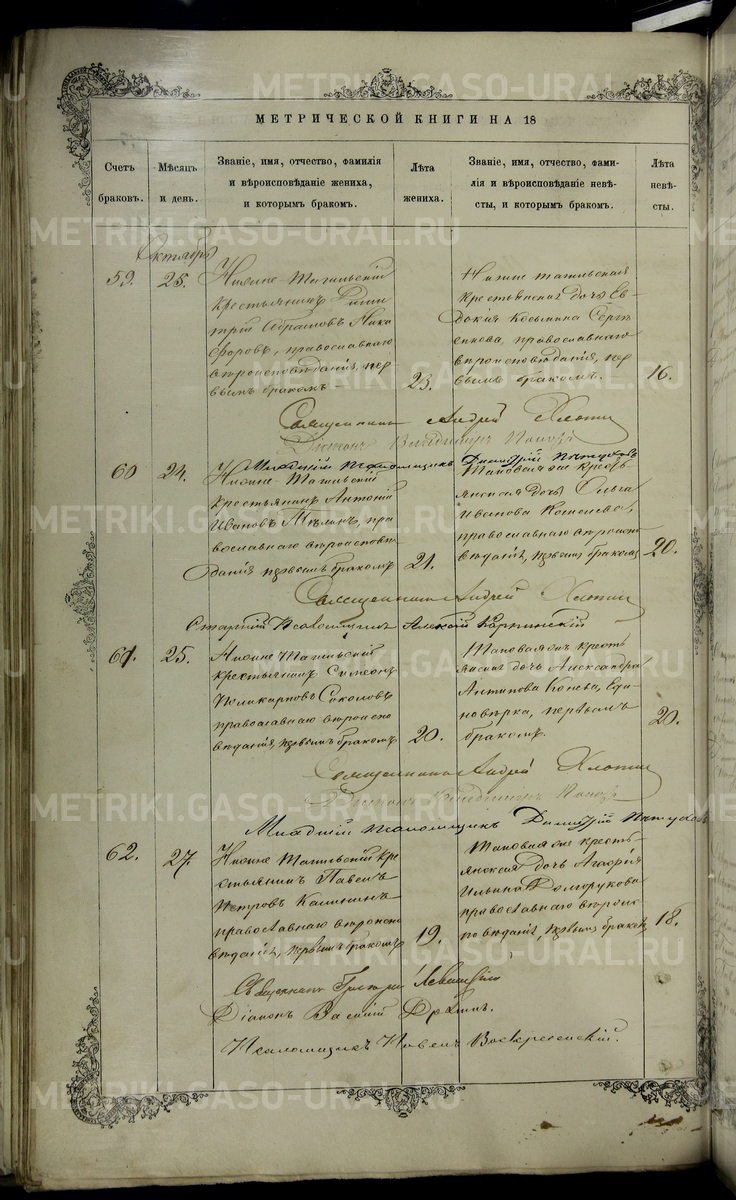 МЕТРИЧЕСКОЙ КНИГИ НА 18
Счетъ браковъ.
Мѣсяцъ и день.
Званіе, имя, отчество, фамилія
и вѣроисповѣданіе жениха,
и которымъ бракомъ.
Лѣта жениха.
Званіе, имя, отчество, фами-
лія и вѣроисповѣданіе невѣ-
сты, и которымъ бракомъ.
Лѣта невѣ-
сты.
Октября
59.
25.
Нижне-Тагильскій
крестьянинъ Дими
трій Абрамовъ Ники
форовъ, православнаго
вѣроисповѣданія, пер
вымъ бракомъ
23.
Нижне тагильская
крестьянская дочь Ев
докія Косьмина
православнаго
вѣроисповѣданія, пер
вымъ бракомъ.
16.
Священникъ Андрей Хлопин
Діаконъ Владимиръ Попов
Младшій Псаломщикъ Димитрій
60
24.
Нижне-Тагильскій
крестьянинъ Антоній
Ивановъ пра
вославнаго вѣроисповѣ
данія первымъ бракомъ
21.
Таковая же кресть
янская дочь Ольга
Иванова
православнаго вѣроиспо
вѣданія, первымъ бракомъ
20.
Священникъ Андрей Хлопин
Старшій Псаломщикъ Алексій
61.
25.
Нижне Тагильскій
крестьянинъ Симеонъ
Поликарповъ Соколовъ
православнаго вѣроиспо
вѣданія, первымъ бракомъ
20.
Таковая же кресть
янская дочь Александра
Антипова Конева, Еди
новѣрка, первымъ
бракомъ.
20.
Священникъ Андрей Хлопин
Діаконъ Владимиръ Попов
Младшій псаломщикъ Димитрій
62.
27.
Нижне Тагильскій кре
стьянинъ Павелъ
Петровъ Калининъ
православнаго вѣроиспо
вѣданія, первымъ бракомъ
19.
Таковая же кресть
янская дочь Агафія
Ильина Долгорукова
православнаго вѣроис
повѣданія, первымъ бракомъ
18.
Священникъ Григорій Левитскій
Діаконъ Василій
Псаломщикъ Павелъ Воскресенскій.
METRIKI.GASO-URAL.RU